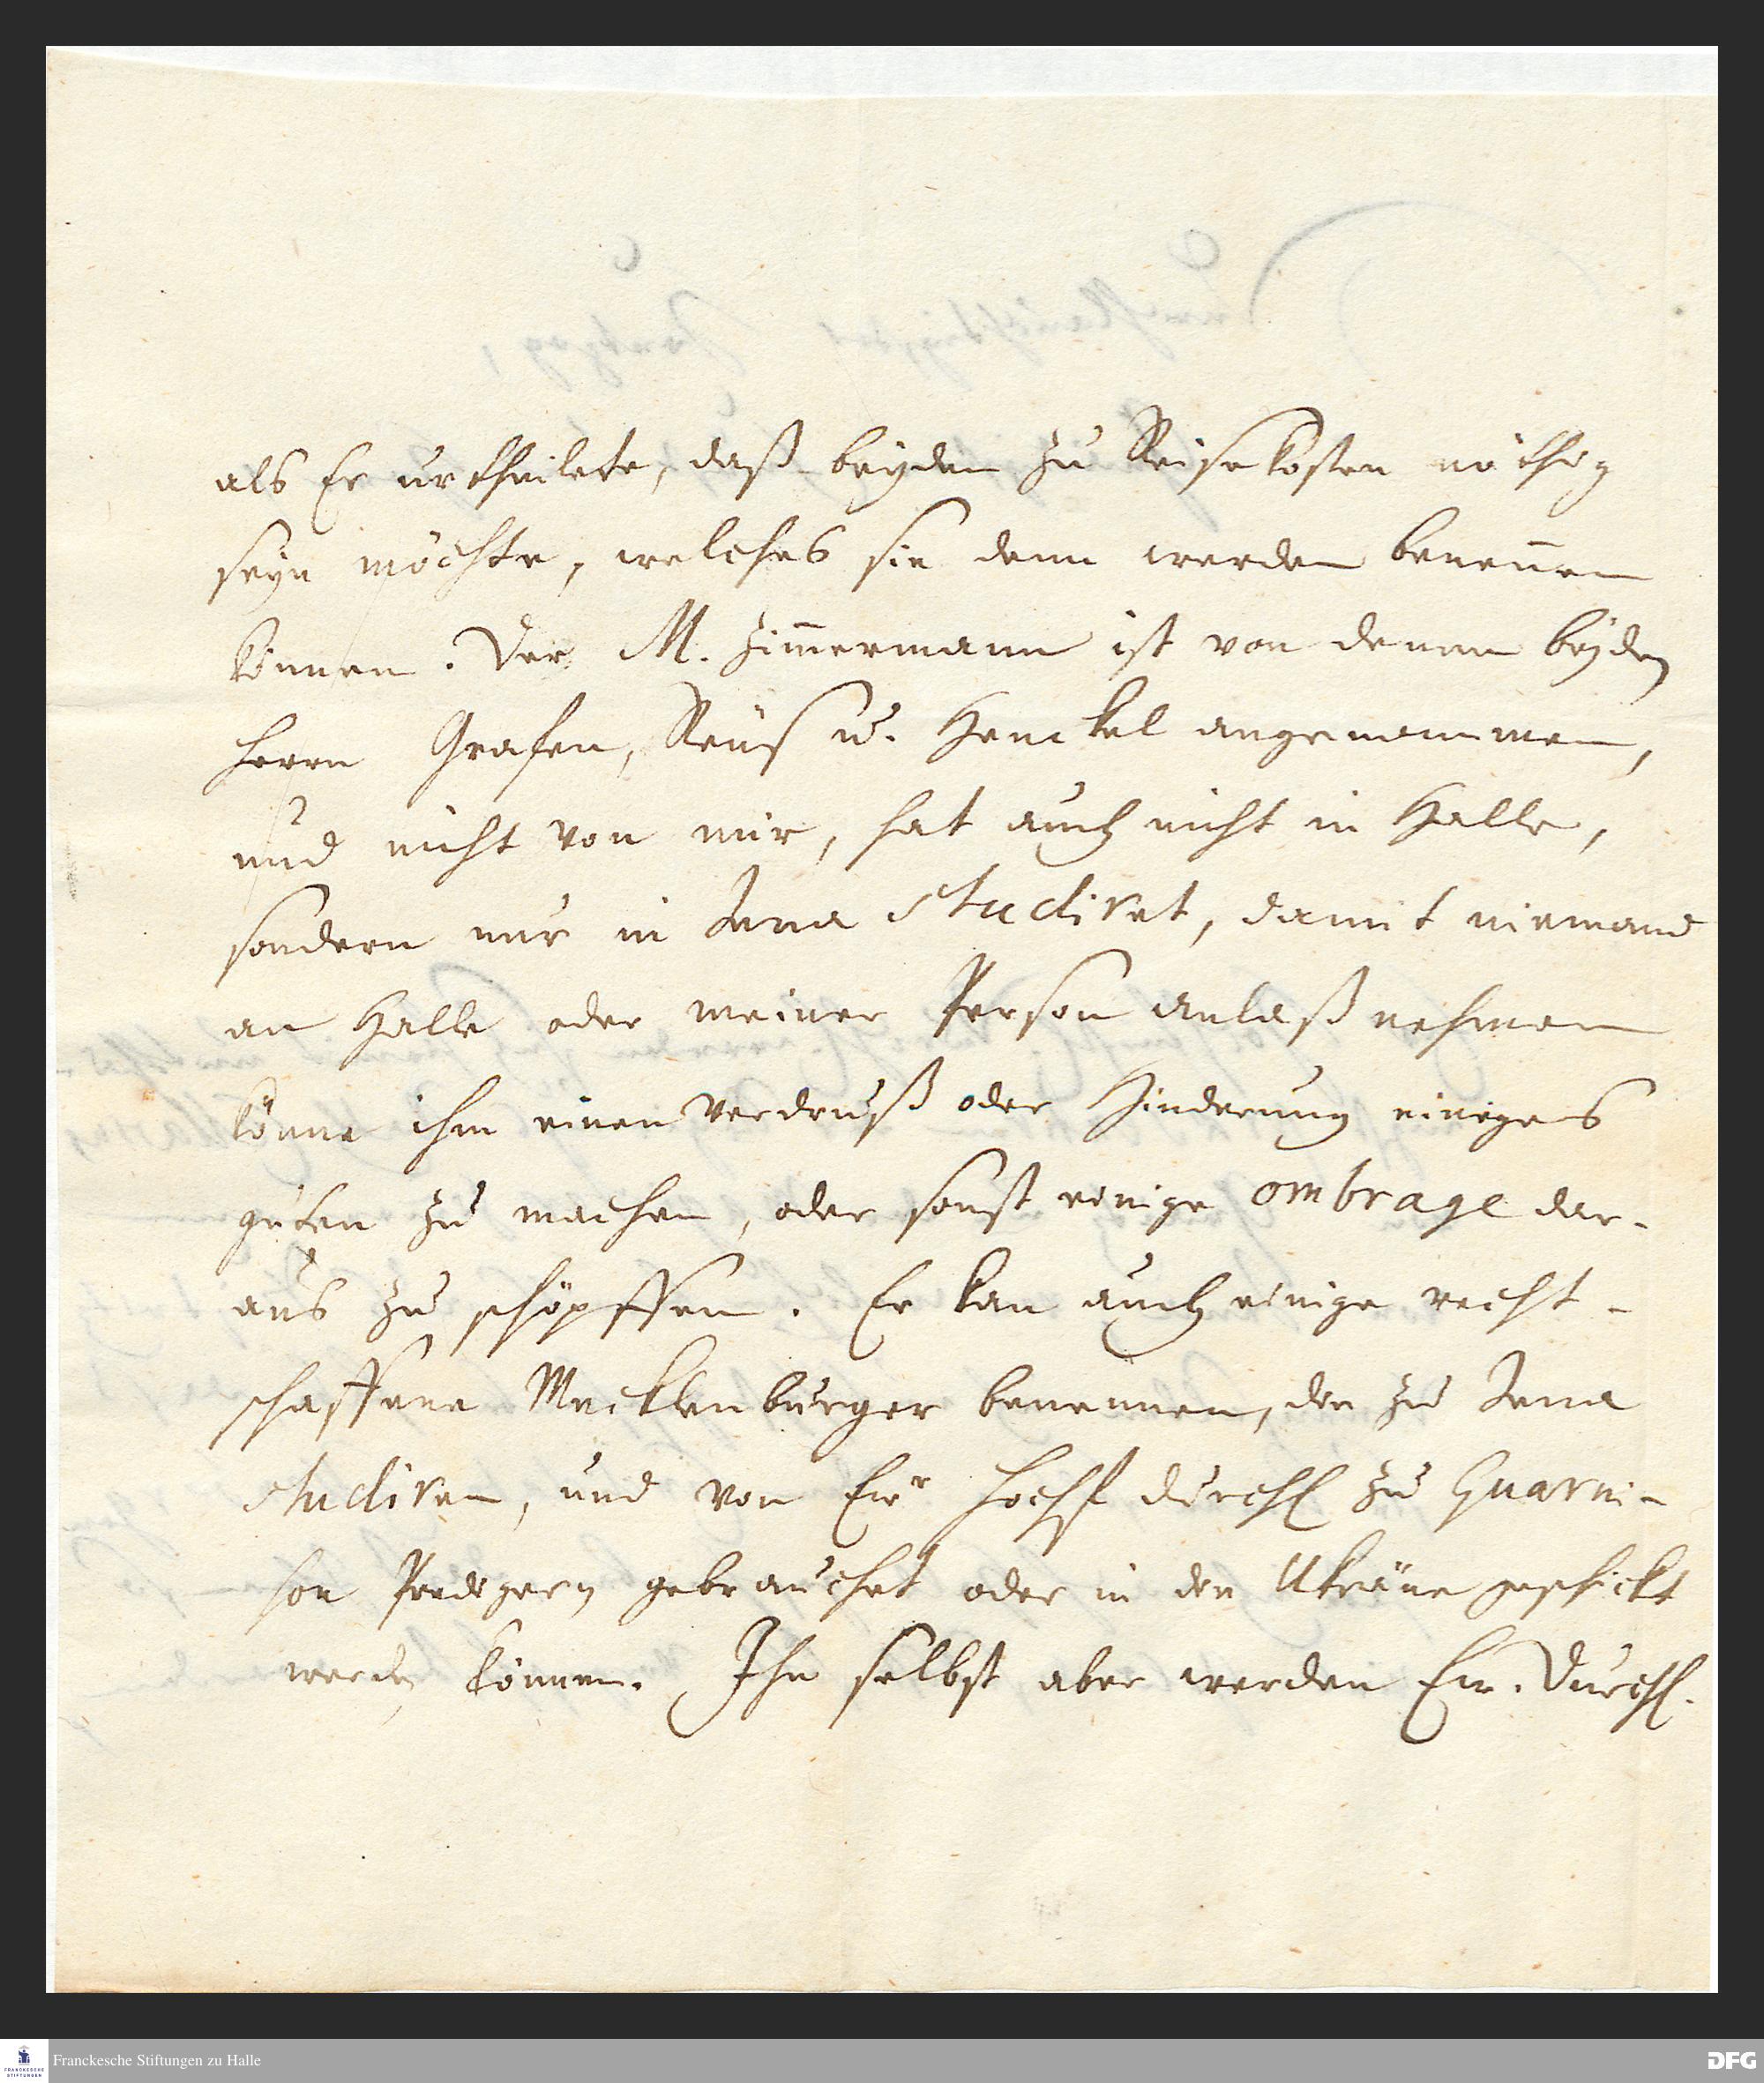 als Er urtheilete, daß beyden zu Reisekosten nöthig
seyn möchte, welches sie denn werden beneñen
können. Der M. Zim̃ermann ist von denen beyden
Herrn Grafen, Reuß u. Henckel angenommen,
und nicht von mir, hat auch nicht in Halle,
sondern nur in Jena studiret, damit niemand
an Halle oder meiner Person anlaß nehmen
könne ihm einen Verdruß oder Hinderung einiges
guten zu machen, oder sonst einige ombrage dar-
aus zu schöpffen. Er kan auch einige recht-
schaffene Mecklenburger benennen, die zu Jena
studiren, und von Ewr Hochf Durchl zu Guarni-
son Predigern gebrauchet oder in die Ukräne geschickt
werden können. Ihn selbst aber werden Ew. Durchl.
Franckesche Stiftungen zu Halle
FRANCKESCHE
STIFTUNGEN
DFG